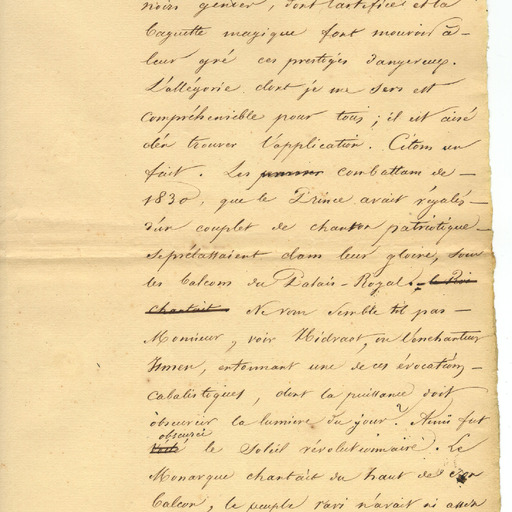 noirs genier, dont l'artifice et la
baguette magique font mouvoir à
leur gré ces prestiges dangereux.
L'allégorie dont je me sers est
compréhensible pour tous ; il est aisé
d'en trouver l'application. Citons un
fait. Les combattans de
1830, que le Prince avait régalés
d'un couplet de chanson patriotique
se prélassaient dans leur gloire, sous
les balcons du Palais-Royal. le Roi
chantait. Ne vous semble t-il pas
Monsieur, voir Hidraot, ou l'enchanteur
Ismen, entonnant une de ces évocations
cabalistiques, dont la puissance doit
obscurcir la lumière du jour ? Ainsi fut
obscurci
voilé le Soleil révolutionnaire. Le
Monarque chantait du haut de son
balcon, le peuple ravi n'avait ni assez